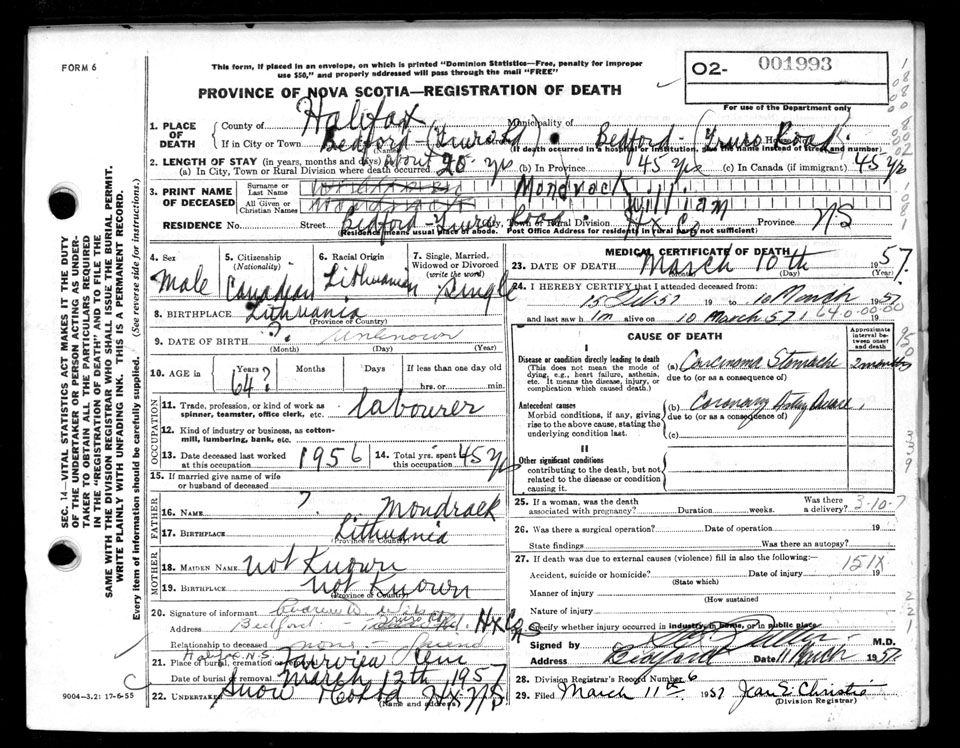 FORM 6
This form, if placed in an envelope, on which is printed "Dominion Statistics—Free, penalty for improper
use $50," and properly addressed will pass through the mail "FREE"
O2- 001993
For use of the Department only
PROVINCE OF NOVA SCOTIA—REGISTRATION OF DEATH
1. PLACE OF DEATH
County of Halifax Municipality of
If in City or Town Bedford (Truro Rd) Bedford - (Truro Road)
(Name)
(If death occurred in a hospital or institution, give the name instead of street and number)
2. LENGTH OF STAY (in years, months and days)
(a) In City, Town or Rural Division where death occurred about 20 yrs (b) In Province 45 yrs (c) In Canada (if immigrant) 45 yrs
3. PRINT NAME OF DECEASED
Surname or Last Name Mondrack
All Given or Christian Names William
RESIDENCE No. Street Bedford-Truro Road City, Town or Rural Division Hx Co Province NS
(Residence means usual place of abode. Post Office Address for residents in rural parts not sufficient)
4. Sex Male
5. Citizenship (Nationality) Canadian
6. Racial Origin Lithuanian
7. Single, Married, Widowed or Divorced (write the word) Single
8. BIRTHPLACE Lithuania
(Province or Country)
9. DATE OF BIRTH ? Unknown
(Month) (Day) (Year)
10. AGE in Years 64? Months Days If less than one day old
hrs. or min.
OCCUPATION
11. Trade, profession, or kind of work as
spinner, teamster, office clerk, etc. labourer
12. Kind of industry or business, as cotton-
mill, lumbering, bank, etc.
13. Date deceased last worked at this occupation 1956
14. Total yrs. spent in this occupation 45 yrs
15. If married give name of wife
or husband of deceased
FATHER
16. NAME ? Mondrack
17. BIRTHPLACE Lithuania
(Province or Country)
MOTHER
18. MAIDEN NAME not Known
19. BIRTHPLACE not Known
(Province or Country)
20. Signature of informant
Address Bedford - Truro Rd. Hx Co NS
Relationship to deceased none. friend
21. Place of burial, cremation or Halifax N.S. Fairview Cem
Date of burial or removal March 12th 1957
22. Undertaker Snow Hx NS
(Name and address)
MEDICAL CERTIFICATE OF DEATH
23. DATE OF DEATH March 10th 1957.
(Month) (Day) (Year)
24. I HEREBY CERTIFY that I attended deceased from:
15 Feb. 57 19 to 10 March 1957
and last saw him alive on 10 March 57 19
640.00.00
CAUSE OF DEATH
Approximate interval between onset and death
I
Disease or condition directly leading to death
(This does not mean the mode of
dying, e.g., heart failure, asthenia,
etc. It means the disease, injury, or
complication which caused death.)
(a) Carcinoma Stomach 2 months
due to (or as a consequence of)
Antecedent causes
Morbid conditions, if any, giving
rise to the above cause, stating the
underlying condition last.
(b) Coronary Artery Disease
due to (or as a consequence of)
(c)
II
Other significant conditions
contributing to the death, but not
related to the disease or condition
causing it.
25. If a woman, was the death
associated with pregnancy? Duration weeks. Was there a delivery? 3-10-7
26. Was there a surgical operation? Date of operation 19
State findings Was there an autopsy?
27. If death was due to external causes (violence) fill in also the following:—
151X
Accident, suicide or homicide? Date of injury 19
(State which)
Manner of injury
(How sustained
Nature of injury
Specify whether injury occurred in industry, in home, or in public place
Signed by M.D.
Address Bedford Date 11 March 1957
28. Division Registrar's Record Number 6
29. Filed March 11th 1957 Jean E. Christie
(Division Registrar)
SEC. 14—VITAL STATISTICS ACT MAKES IT THE DUTY
OF THE UNDERTAKER OR PERSON ACTING AS UNDER-
TAKER TO OBTAIN ALL THE PARTICULARS REQUIRED
IN THE "REGISTRATION OF DEATH" AND TO FILE THE
SAME WITH THE DIVISION REGISTRAR WHO SHALL ISSUE THE BURIAL PERMIT.
WRITE PLAINLY WITH UNFADING INK. THIS IS A PERMANENT RECORD.
Every item of information should be carefully supplied. (See reverse side for instructions.)
9004—3.21: 17-6-55